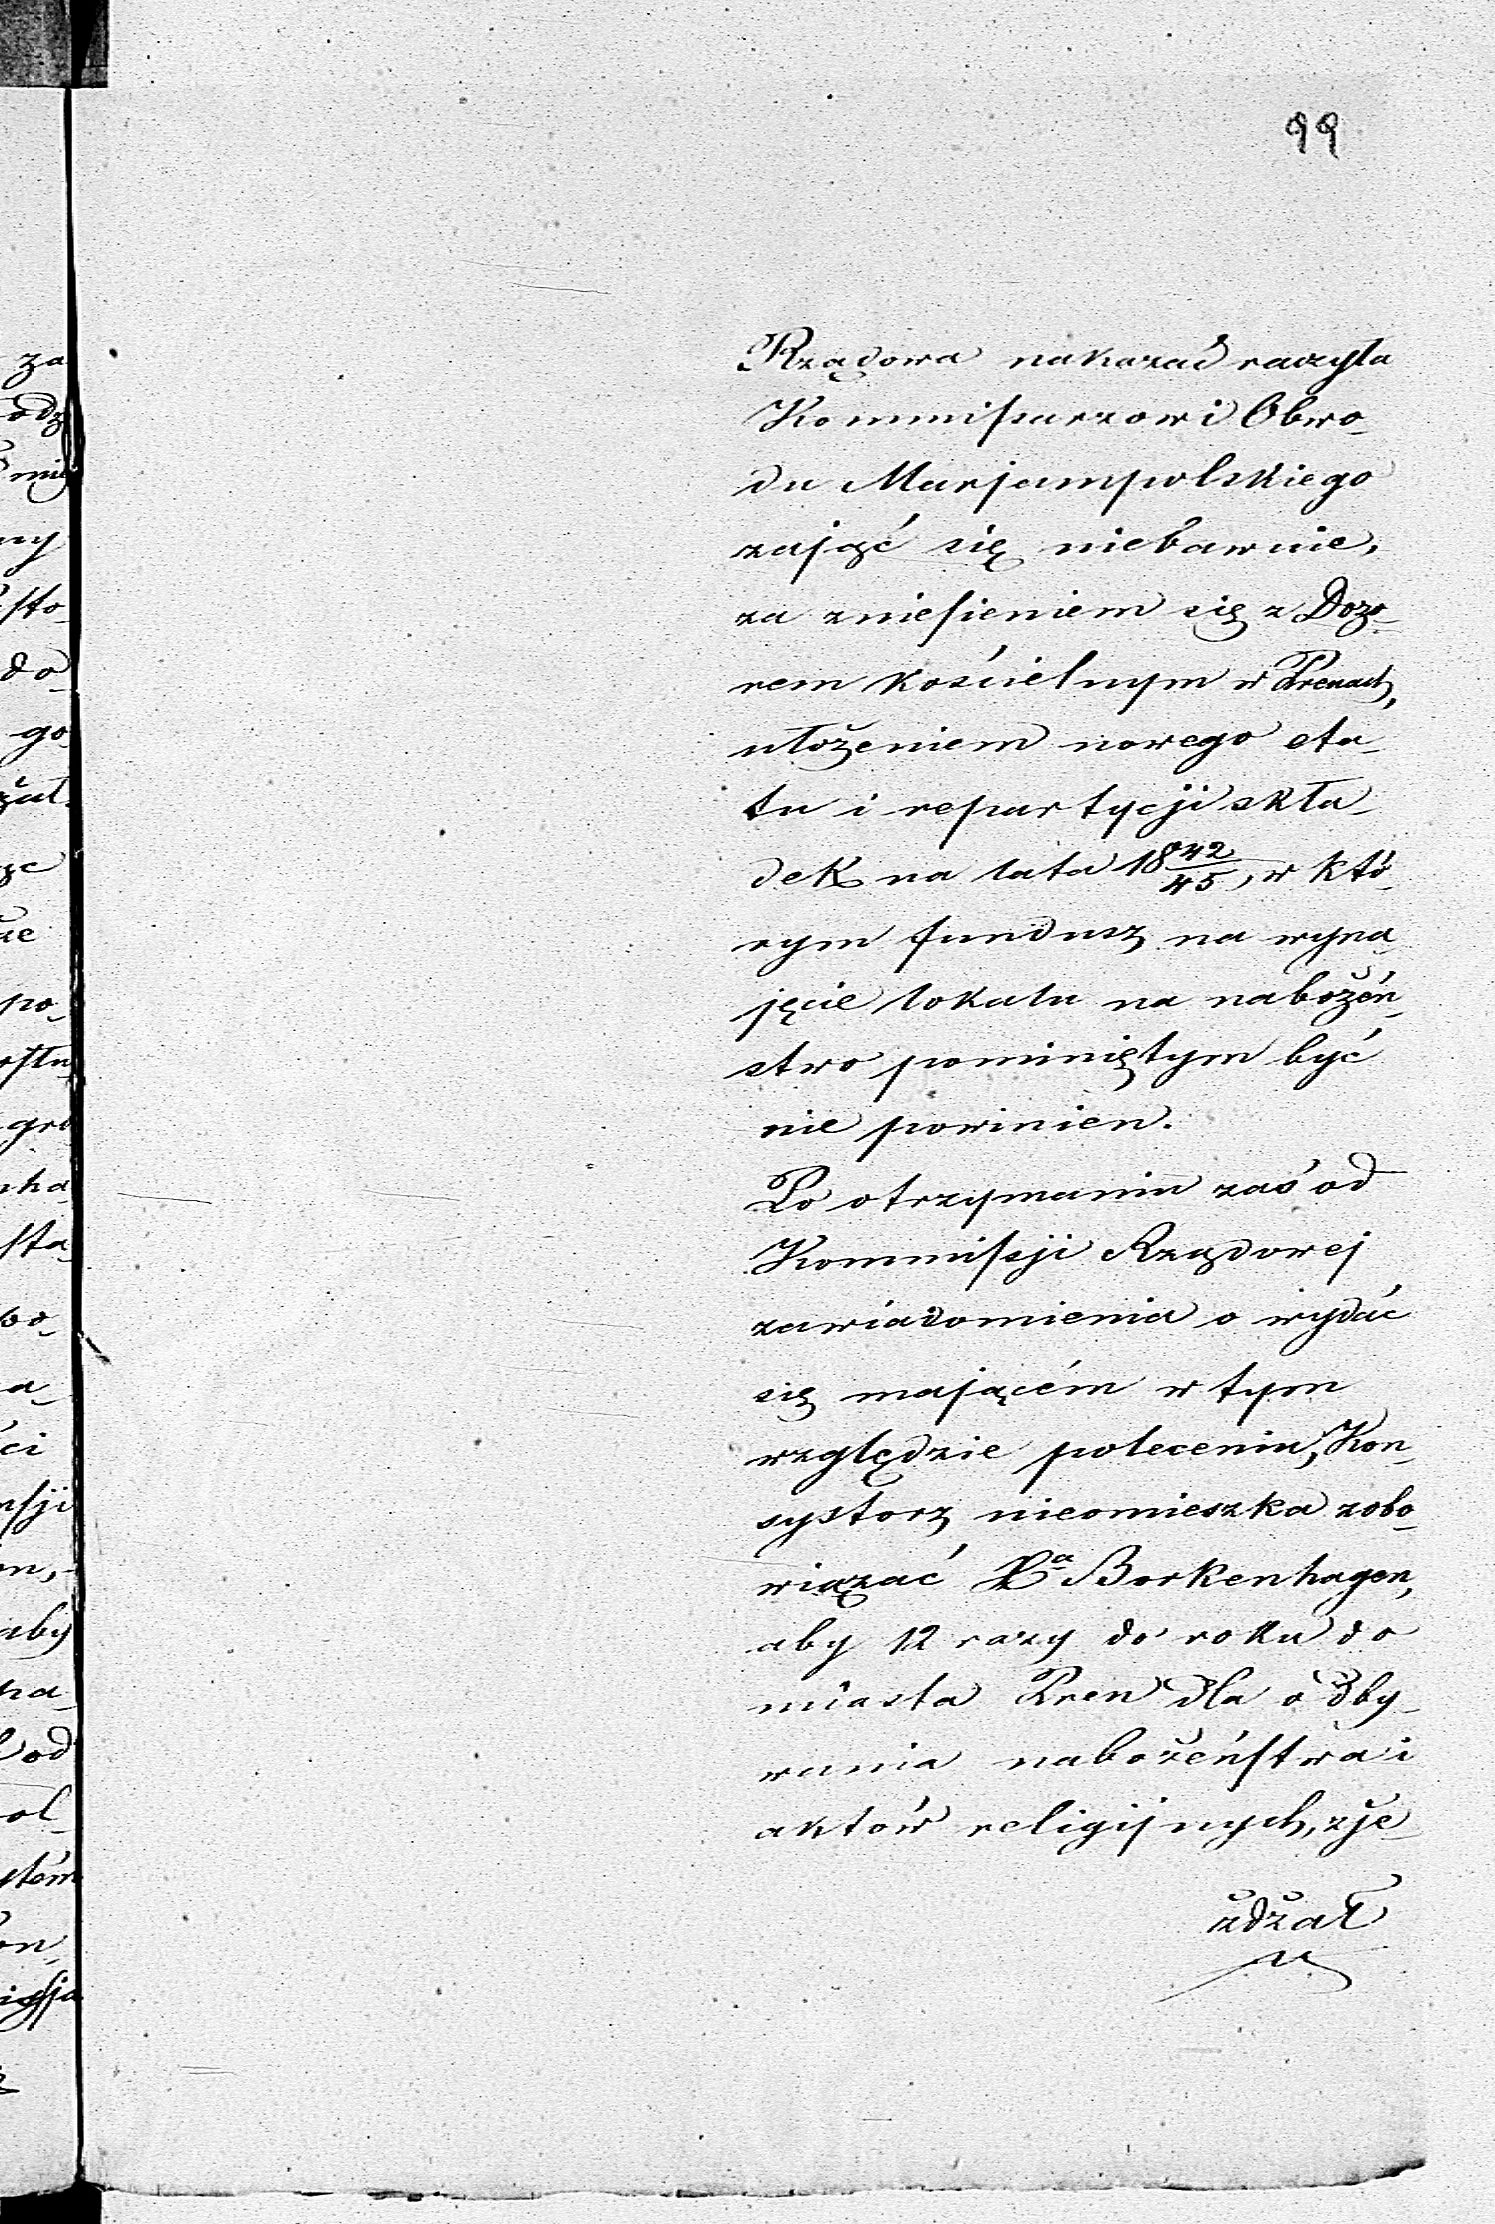 99
Rządowa nakazać raczyła
Kommissarzowi Obwo-
du Marjampolskiego
zająć się niebawnie,
za zniesieniem się z Dozo-
rem kościelnym w Prenach,
ułożeniem nowego eta-
tu i repartycji skła-
dek na lata 18 42/45, w któ-
rym fundusz na wyna-
jęcie lokalu na nabożeń-
stwo pominiętym być
nie powinien.
Po otrzymaniu zaś od
Kommissji Rządowej
zawiadomienia o wydać
się mającém w tym
względzie poleceniu, Kon-
systorz nieomieszka zobo-
wiązać Xa Borkenhagen,
aby 12 razy do roku do
miasta Pren dla odby-
wania nabożeństwa i
aktów religijnych, zje-
żdżał